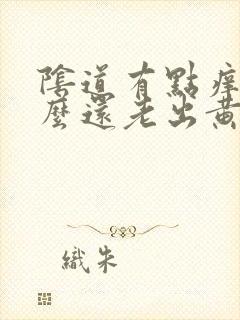 陰道有點痒
麼還老出黃
織朱